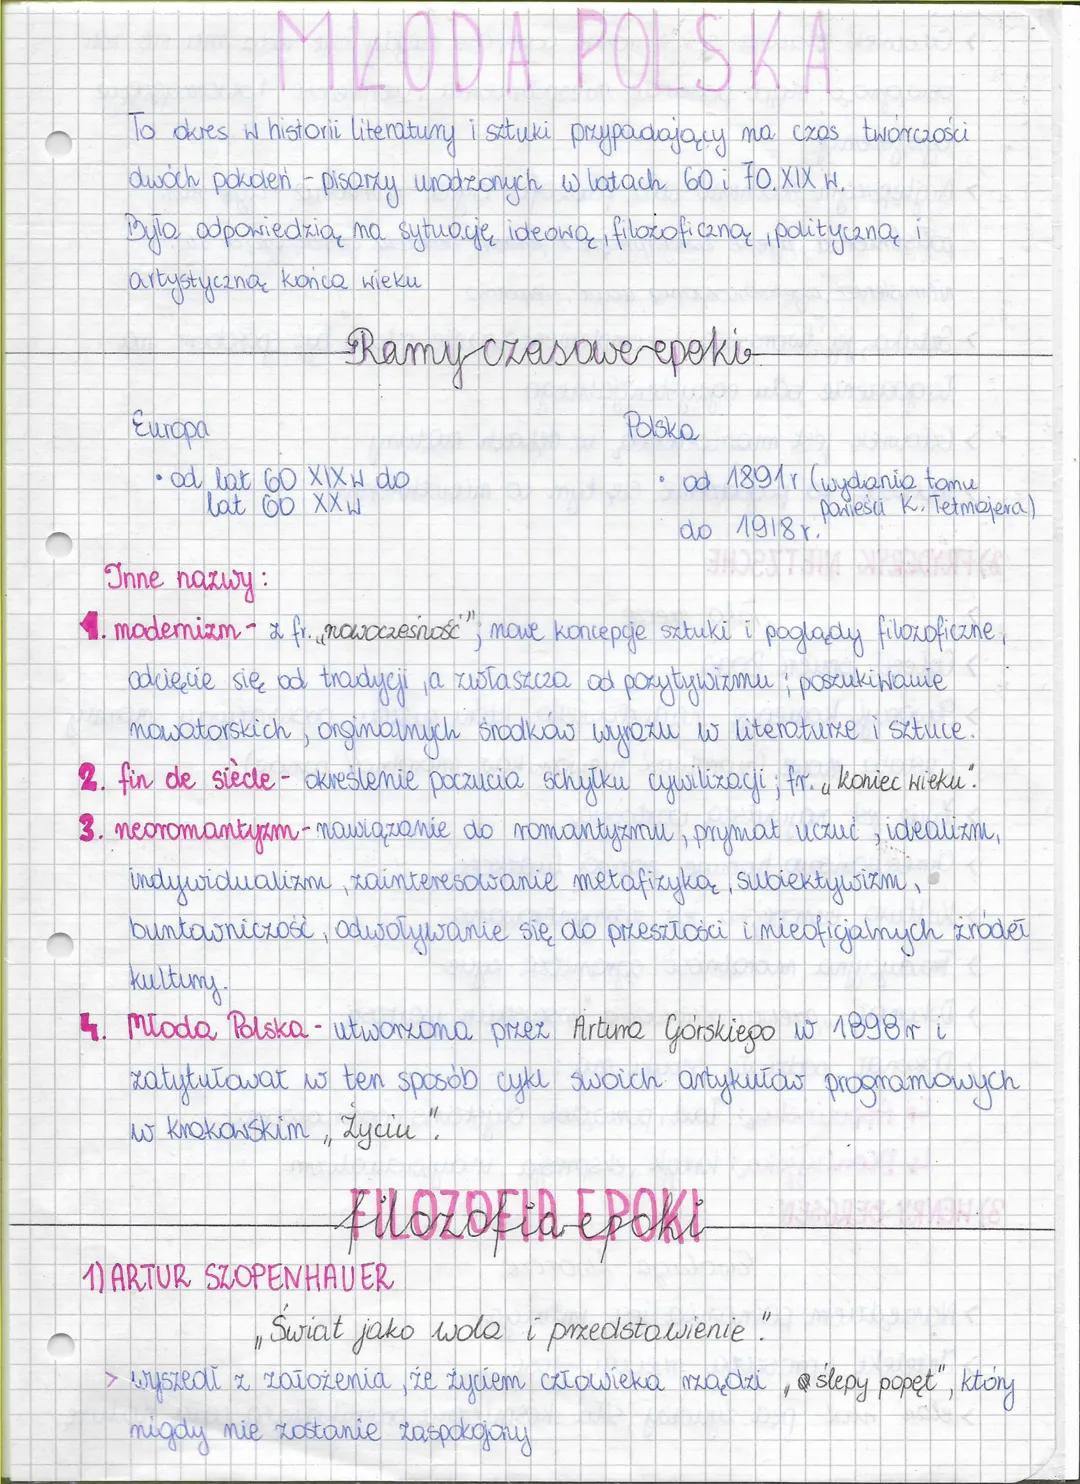 MŁODA POLSKA
To okres w historii literatury i sztuki przypadający na czas twórczości
dwóch pokoleń - pisarzy urodzonych w latach 60 i 70. XIX w.
Była odpowiedzią na sytuację ideową, filozoficzną, polityczną i
artystyczną końca wieku
Ramy czasowe epoki
Europa
• od lat 60 XIX w do
lat 60 XX w
Polska
• od 1891r (wydania tomu
powieści K. Tetmajera)
do 1918r.
Inne nazwy:
1. modernizm - z fr. „nowoczesność"; nowe koncepcje sztuki i poglądy filozoficzne,
odcięcie się od tradycji, a zwłaszcza od pozytywizmu; poszukiwanie
nowatorskich, orginalnych środków wyrazu w literaturze i sztuce.
2. fin de siècle - określenie poczucia schyłku cywilizacji; fr. „koniec wieku".
3. neoromantyzm - nawiązanie do romantyzmu, prymat uczuć, idealizm,
indywidualizm, zainteresowanie metafizyką, subiektywizm,
buntowniczość, odwoływanie się do przeszłości i nieoficjalnych źródeł
kultury.
4. Młoda Polska - utworzona przez Artura Górskiego w 1898r i
zatytułował w ten sposób cykl swoich artykułów programowych
w krakowskim „Życiu".
FILOZOFIA EPOKI
filozofia epoki
1) ARTUR SZOPENHAUER
„Świat jako wola i przedstawienie".
> wyszedł z założenia, że życiem człowieka rządzi „ślepy popęt", który
nigdy nie zostanie zaspokojony